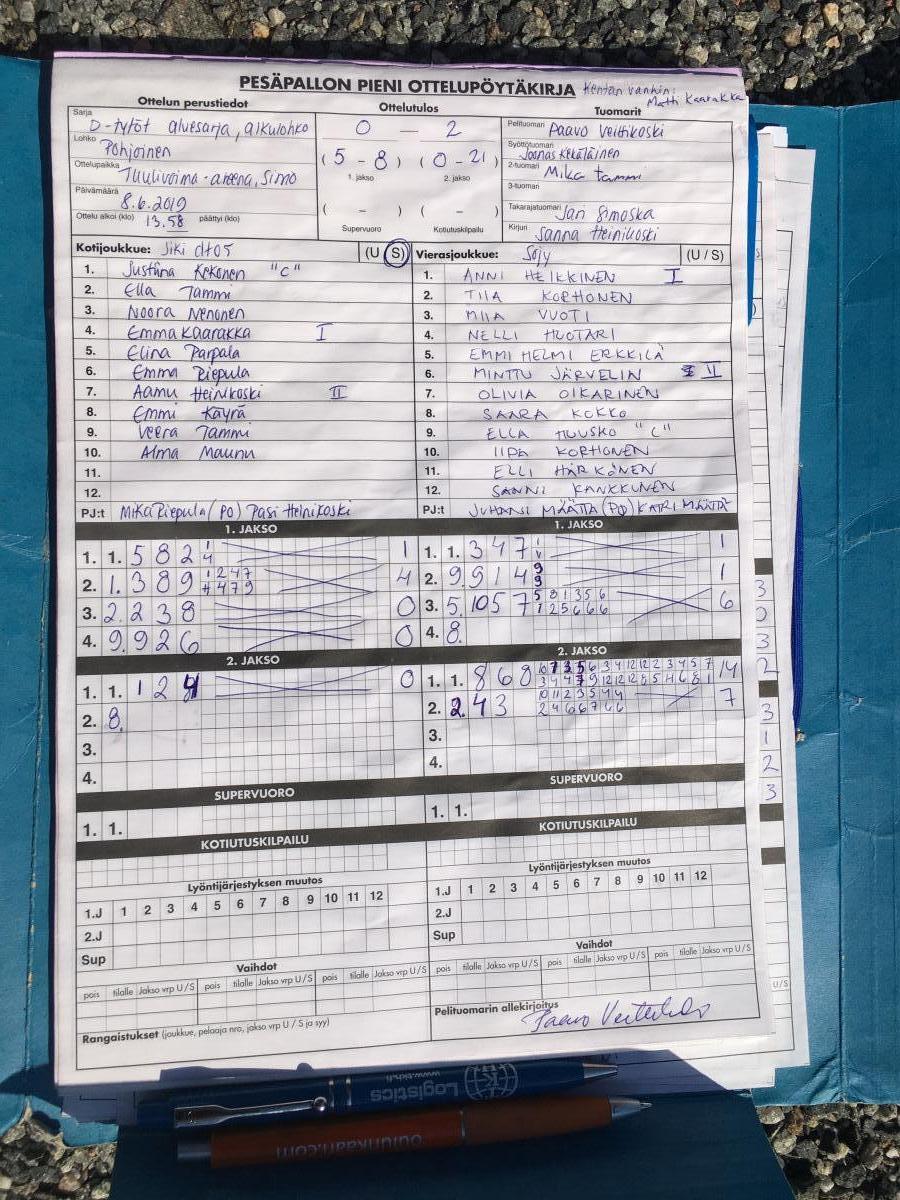 PESÄPALLON PIENI OTTELUPÖYTÄKIRJA
Kentän vanhin:
Matti Kaarakka
Ottelun perustiedot
Ottelutulos
Tuomarit
Sarja
D-tytöt aluesarja, alkulohko
Lohko
Pohjoinen
Ottelupaikka
Tuulivoima-areena, Simo
Päivämäärä
8.6.2019
Ottelu alkoi (klo) 13.58 päättyi (klo)
0 – 2
(5 – 8) (0 – 21)
1. jakso 2. jakso
( – ) ( – )
Supervuoro Kotiutuskilpailu
Pelituomari
Paavo Veittikoski
Syöttötuomari
Joonas Keköläinen
2-tuomari
Mika Tammi
3-tuomari
Takarajatuomari
Jari Simoska
Kirjuri
Sanna Heinikoski
Kotijoukkue: Jiki dt05 (U S)
1. Justiina Kekonen "C"
2. Ella Tammi
3. Noora Nenonen
4. Emma Kaarakka I
5. Elina Parpala
6. Emma Riepula
7. Aamu Heinikoski II
8. Emmi Käyrä
9. Veera Tammi
10. Alma Maunu
11.
12.
PJ:t Mika Riepula (PO) Pasi Heinikoski
Vierasjoukkue: Sojy (U / S)
1. ANNI HEIKKINEN I
2. TIIA KORHONEN
3. MIIA VUOTI
4. NELLI HUOTARI
5. EMMI HELMI ERKKILÄ
6. MINTTU JÄRVELIN II
7. OLIVIA OIKARINEN
8. SAARA KOKKO
9. ELLA HUUSKO "C"
10. IIDA KORHONEN
11. ELLI HÄRKÖNEN
12. SANNI KANKKUNEN
PJ:t JUHANI MÄÄTTÄ (PO) KATRI MÄÄTTÄ
1. JAKSO
1. 1. 5 8 2 1 4 1
2. 1. 3 8 9 1 2 4 7 4 4 7 9 4
3. 2. 2 3 8 0
4. 9. 9 2 6 0
1. JAKSO
1. 1. 3 4 7 1 1
2. 9. 9 1 4 9 9 1
3. 5. 10 5 7 5 8 1 3 5 6 1 2 5 6 6 6 6
4. 8.
2. JAKSO
1. 1. 1 2 4 0
2. 8.
3.
4.
2. JAKSO
1. 1. 8 6 8 10 7 3 5 6 3 4 12 12 2 3 4 5 7 14
3 4 4 7 9 12 12 8 5 4 6 8 1
2. 2. 4 3 10 11 2 3 5 4 4 7
2 4 6 6 7 6 6
3.
4.
SUPERVUORO
1. 1.
SUPERVUORO
1. 1.
KOTIUTUSKILPAILU
KOTIUTUSKILPAILU
Lyöntijärjestyksen muutos
1.J 1 2 3 4 5 6 7 8 9 10 11 12
2.J
Sup
Lyöntijärjestyksen muutos
1.J 1 2 3 4 5 6 7 8 9 10 11 12
2.J
Sup
Vaihdot
pois tilalle Jakso vrp U/S pois tilalle Jakso vrp U/S pois tilalle Jakso vrp U/S
Vaihdot
pois tilalle Jakso vrp U/S pois tilalle Jakso vrp U/S pois tilalle Jakso vrp U/S
Rangaistukset (joukkue, pelaaja nro, jakso vrp U / S ja syy)
Pelituomarin allekirjoitus
Logistics
oulunkaari.com